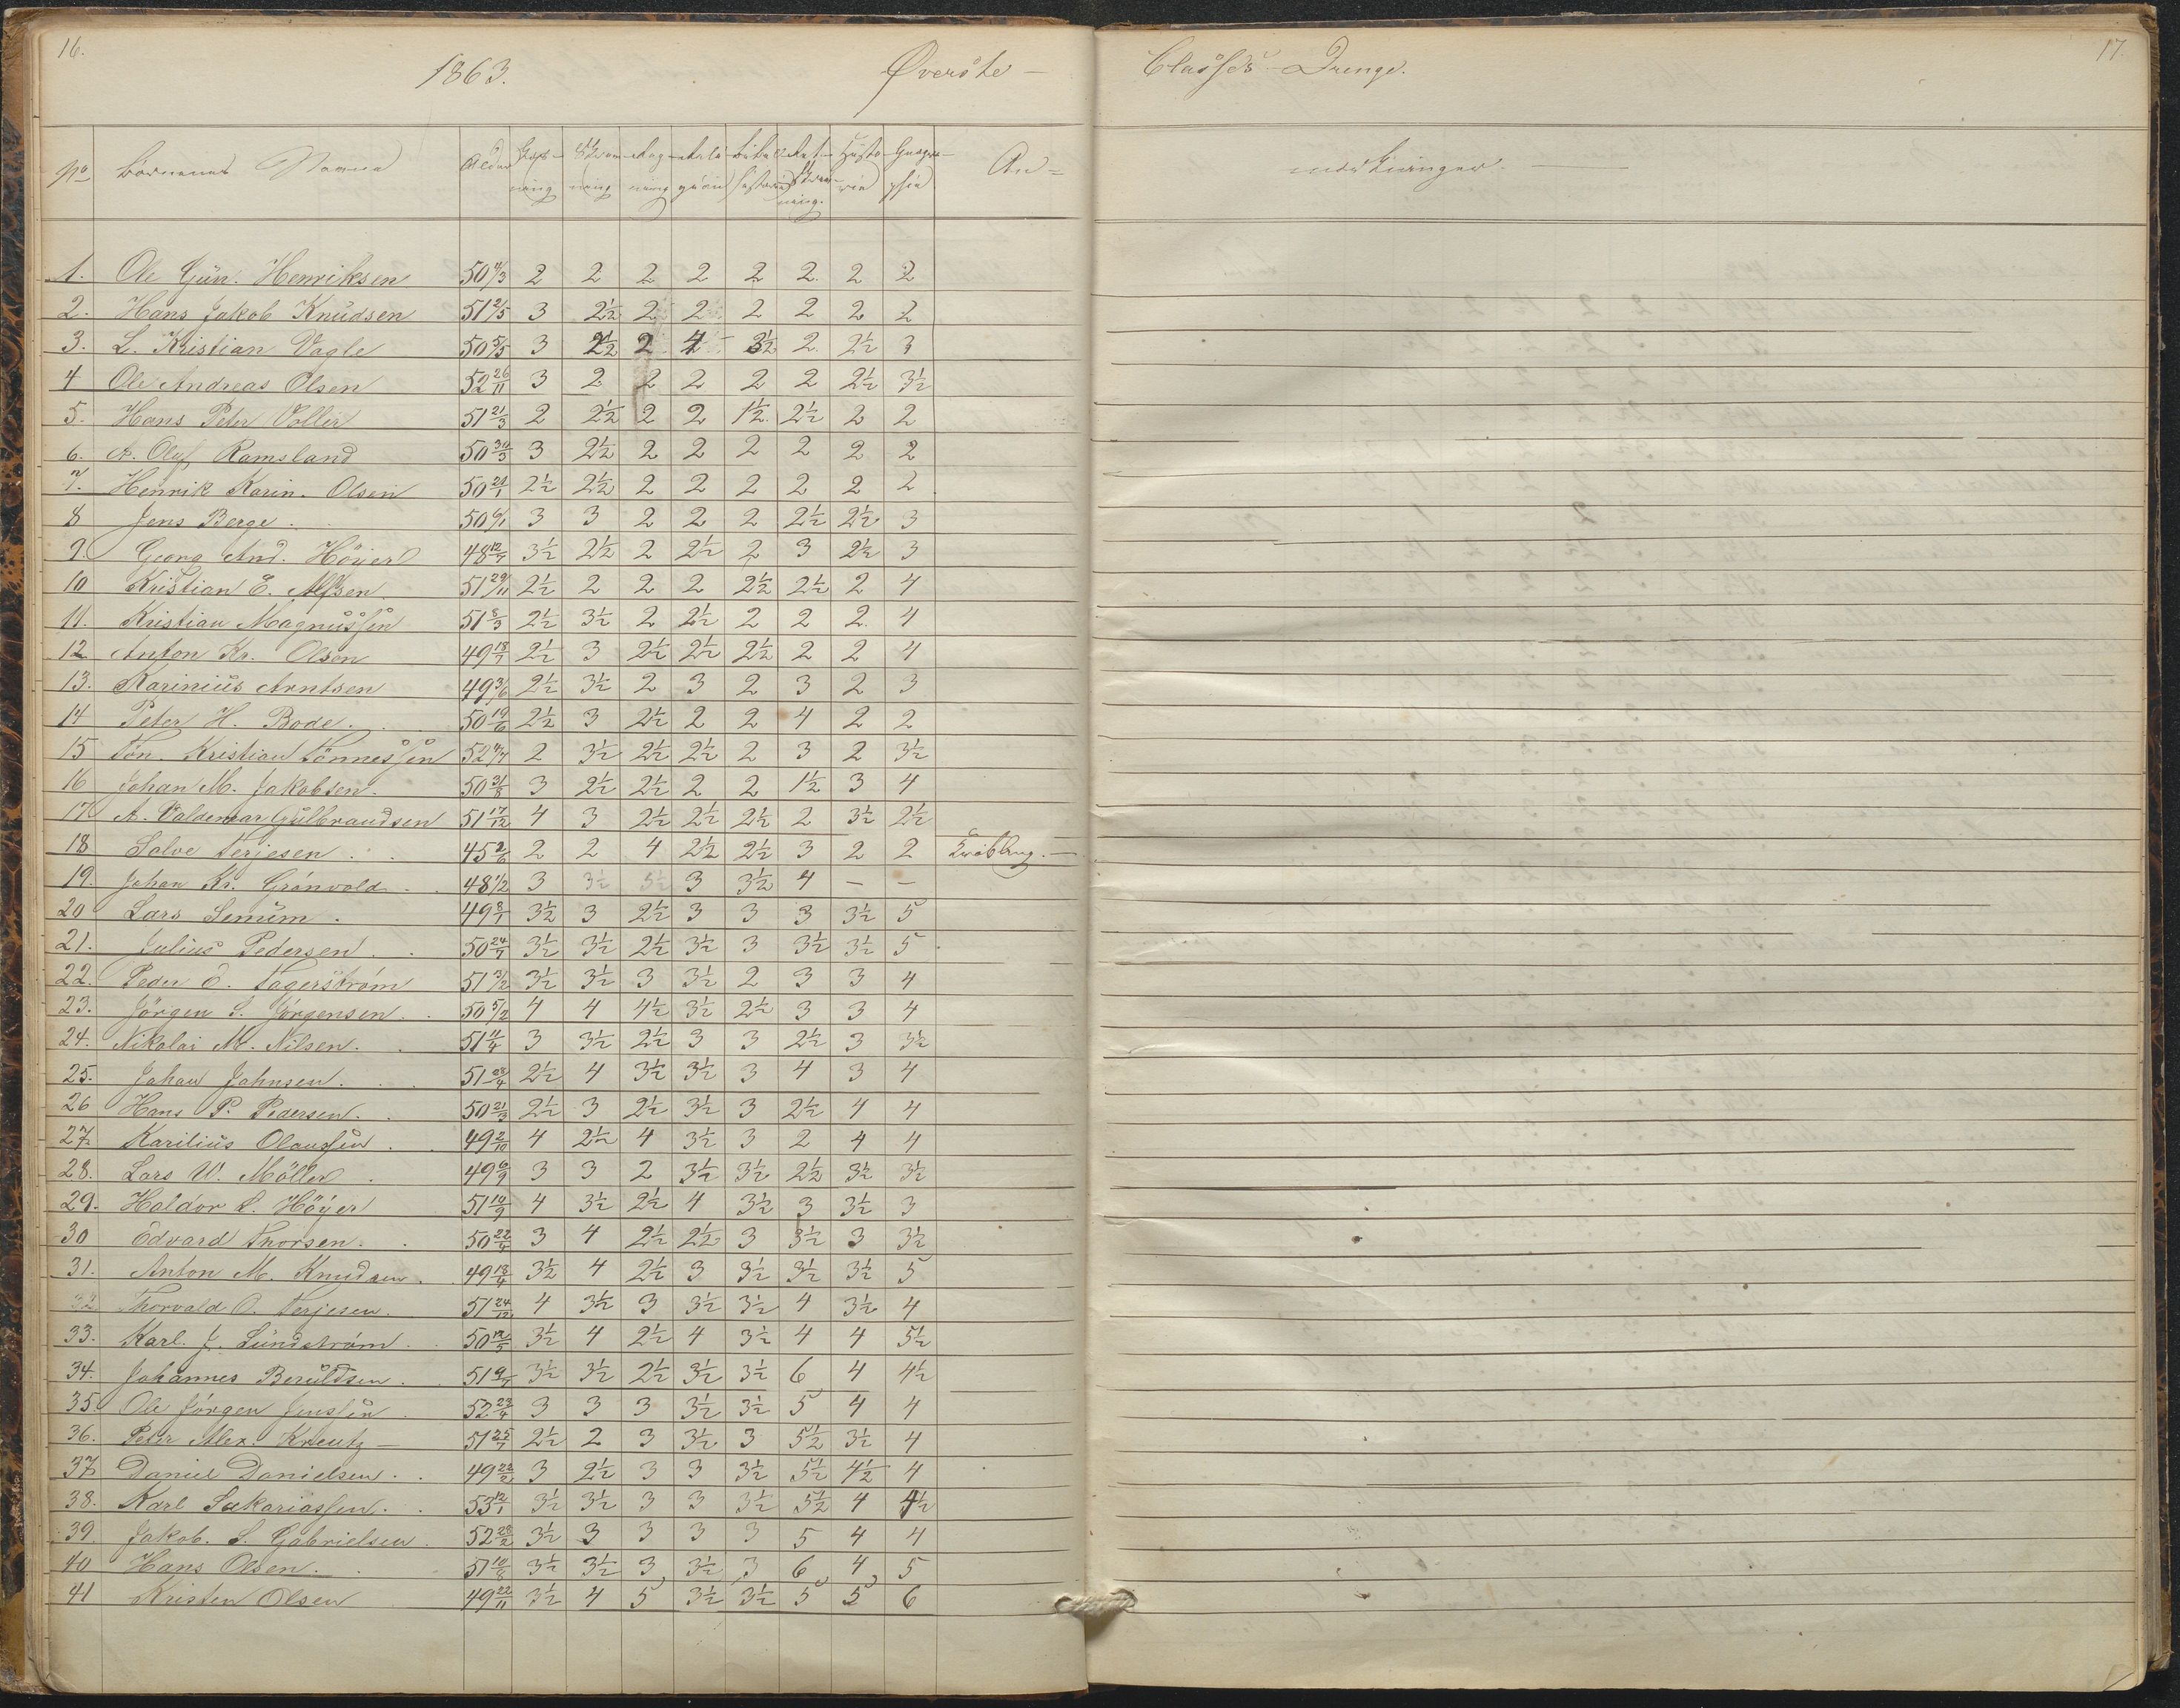 16.
1863.
Øverste —
Classes Drenge.
17
No Børnenes Navne Alder Skriv- Reg- Reli- Bibel- Ret- Histo- Geogra- An=
ning ning ning gion historie Skriv- rie phie
ning.
mærkninger.
1. Ole Gün. Henriksen 50 4/3 2 2 2 2 2 2 2 2
2. Hans Jakob Knudsen 51 2/5 3 2½ 2 2 2 2 2 2
3. L. Kristian Vagle 50 5/5 3 2½ 2 4 3½ 2 2½ 3
4 Ole Andreas Olsen 52 26/11 3 2 2 2 2 2 2½ 3½
5. Hans Peter Voller 51 21/3 2 2½ 2 2 1½ 2½ 2 2
6. A. Oluf Ramsland 50 30/3 3 2½ 2 2 2 2 2 2
7. Henrik Karin. Olsen 50 21/1 2½ 2½ 2 2 2 2 2 2
8 Jens Berge. 50 6/1 3 3 2 2 2 2½ 2½ 3
9. Georg And. Höyer 48 12/7 3½ 2½ 2 2½ 2 3 2½ 3
10 Kristian E. Alfsen. 51 29/11 2½ 2 2 2 2½ 2½ 2 4
11. Kristian Magnussen 51 8/3 2½ 3½ 2 2½ 2 2 2 4
12 Anton Kr. Olsen 49 18/7 2½ 3 2½ 2½ 2½ 2 2 4
13. Karinius Arntsen 49 3/6 2½ 3½ 2 3 2 3 2 3
14 Peter H. Bode. 50 19/6 2½ 3 2½ 2 2 4 2 2
15 Tön. Kristian Tönnessen 52 4/7 2 3½ 2½ 2½ 2 3 2 3½
16 Johan M. Jakobsen. 50 31/8 3 2½ 2½ 2 2 1½ 3 4
17 A. Valdemar Gulbrandsen 51 17/12 4 3 2½ 2½ 2½ 2 3½ 2½
18 Salve Terjesen . . 45 2/6 2 2 4 2½ 2½ 3 2 2
19. Johan Kr. Grönvold . . 48 1/2 3 3½ 3½ 3 3½ 4 — —
20 Lars Semüm . 49 8/1 3½ 3 2½ 3 3 3 3½ 5
21. Julius Pedersen . . 50 24/7 3½ 3½ 2½ 3½ 3 3½ 3½ 5
22. Peder E. Fagerström 51 3/2 3½ 3½ 3 3½ 2 3 3 4
23. Jörgen S. Jörgensen . . 50 5/2 4 4 4½ 3½ 2½ 3 3 4
24. Nikolai M. Nilsen. . 51 11/4 3 3½ 2½ 3 3 2½ 3 3½
25. Johan Johnsen. . . 51 28/4 2½ 4 3½ 3½ 3 4 3 4
26 Hans P. Pedersen. . 50 21/3 2½ 3 2½ 3½ 3 2½ 4 4
27 Karilius Olaussen . . 49 2/10 4 2½ 4 3½ 3 2 4 4
28. Lars W. Möller . 49 6/9 3 3 2 3½ 3½ 2½ 3½ 3½
29. Haldor L. Höyer 51 10/9 4 3½ 2½ 4 3½ 3 3½ 3
30 Edvard Thorsen. . 50 22/4 3 4 2½ 2½ 3 3½ 3 3½
31. Anton M. Knudsen. . 49 18/4 3½ 4 2½ 3 3½ 3½ 3½ 5
32 Thorvald O. Terjesen. 51 24/12 4 3½ 3 3½ 3½ 4 3½ 4
33. Karl. J. Lündström . . 50 12/5 3½ 4 2½ 4 3½ 4 4 5½
34. Johannes Beruldsen . 51 9/7 3½ 3½ 2½ 3½ 3½ 6 4 4½
35 Ole Jörgen Jenssen . 52 23/4 3 3 3 3½ 3½ 5 4 4
36. Peter Alex. Kreutz — 51 25/7 2½ 2 3 3½ 3 5½ 3½ 4
37 Daniel Danielsen. . 49 22/2 3 2½ 3 3 3½ 5½ 4½ 4
38. Karl Sakariassen. . 53 12/1 3½ 3½ 3 3 3½ 5½ 4 4½
39. Jakob. S. Gabrielsen . 52 28/2 3½ 3 3 3 3 5 4 4
40 Hans Olsen. . 51 10/8 3½ 3½ 3 3½ 3 6 4 5
41 Kristen Olsen 49 22/11 3½ 4 5 3½ 3½ 5 5 6